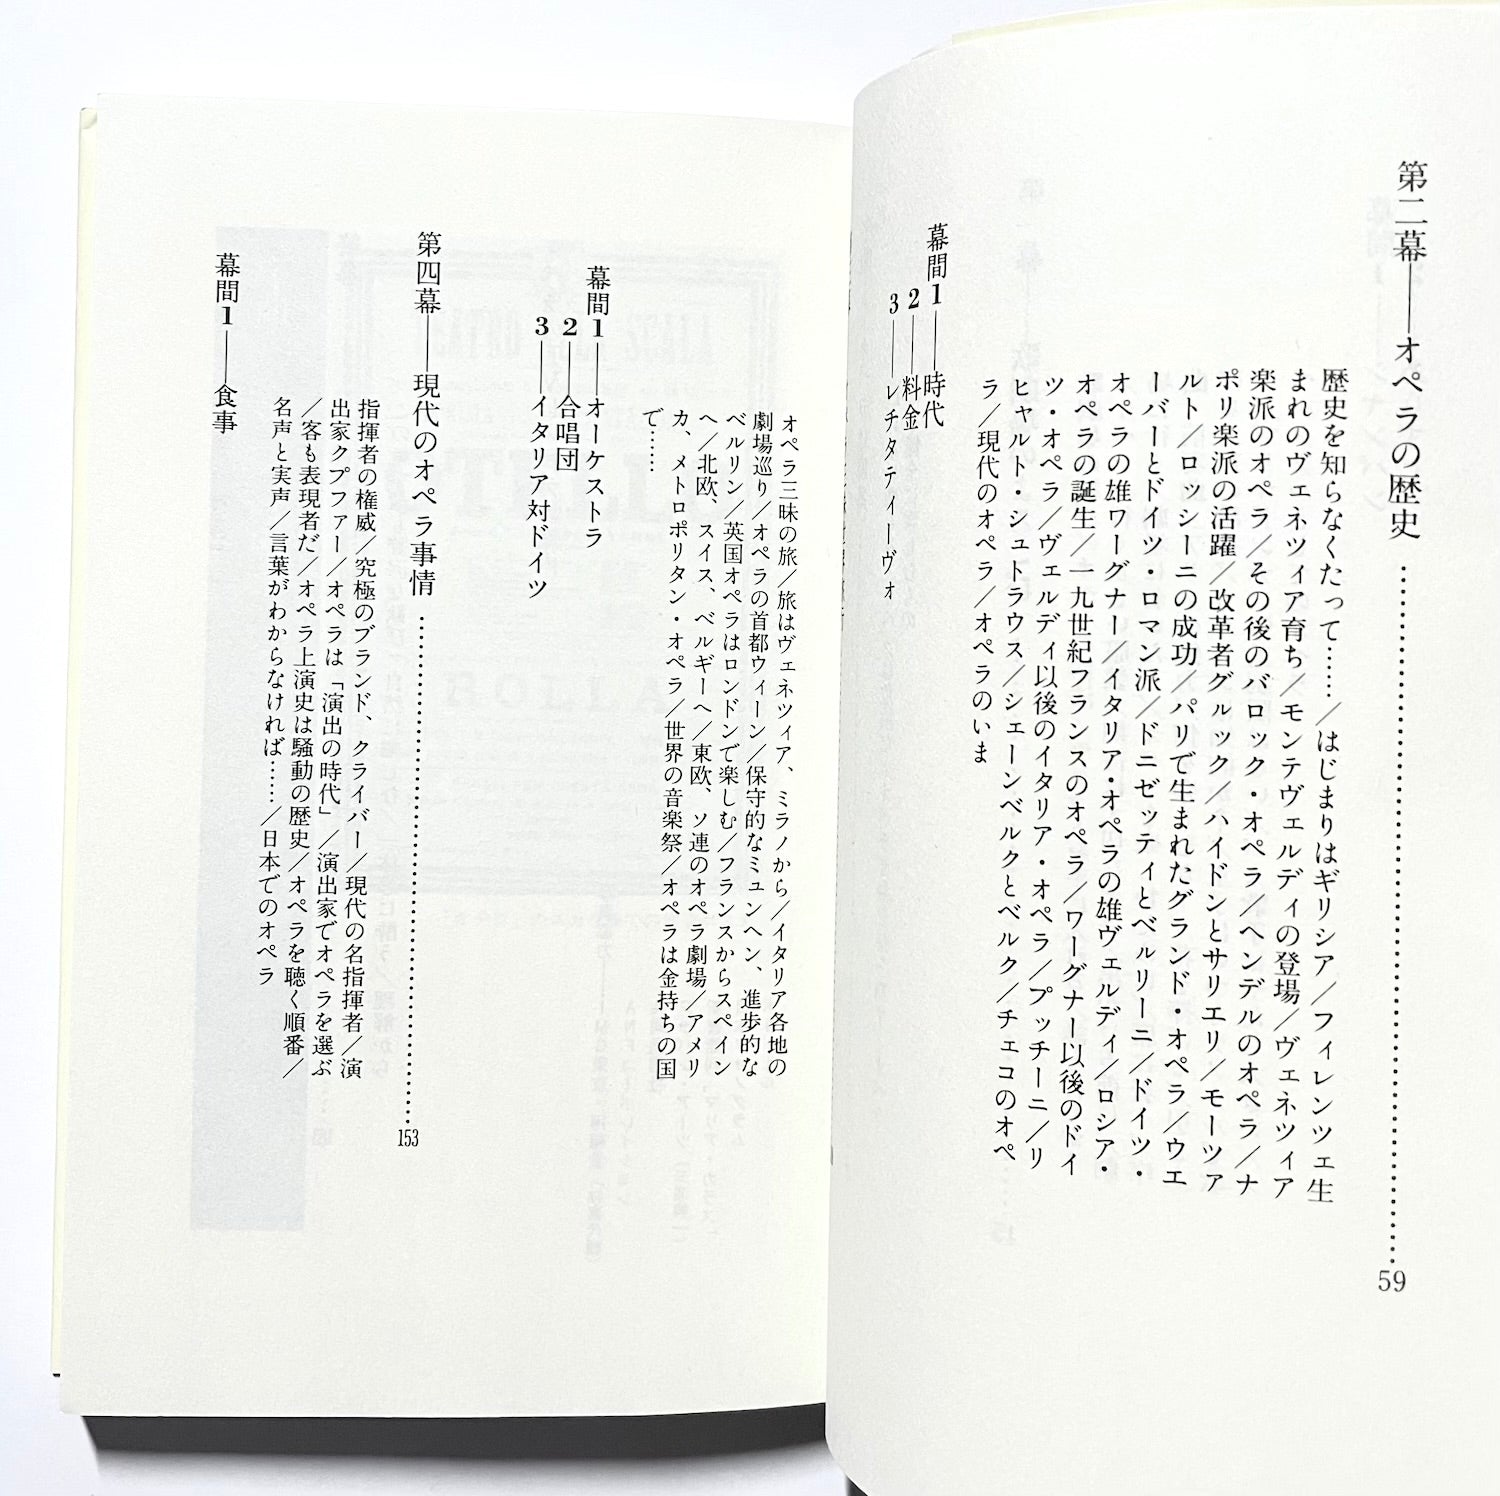 第二幕――オペラの歴史…………59
歴史を知らなくたって……／はじまりはギリシア／フィレンツェ生
まれのヴェネツィア育ち／モンテヴェルディの登場／ヴェネツィア
楽派のオペラ／その後のバロック・オペラ／ヘンデルのオペラ／ナ
ポリ楽派の活躍／改革者グルック／ハイドンとサリエリ／モーツァ
ルト／ロッシーニの成功／パリで生まれたグランド・オペラ／ウエ
ーバーとドイツ・ロマン派／ドニゼッティとベルリーニ／ドイツ・
オペラの雄ワーグナー／イタリア・オペラの雄ヴェルディ／ロシア・
オペラの誕生／一九世紀フランスのオペラ／ワーグナー以後のドイ
ツ・オペラ／ヴェルディ以後のイタリア・オペラ／プッチーニ／リ
ヒャルト・シュトラウス／シェーンベルクとベルク／チェコのオペ
ラ／現代のオペラ／オペラのいま
幕間1――時代
2――料金
3――レチタティーヴォ
オペラ三昧の旅／旅はヴェネツィア、ミラノから／イタリア各地の
劇場巡り／オペラの首都ウィーン／保守的なミュンヘン、進歩的な
ベルリン／英国オペラはロンドンで楽しむ／フランスからスペイン
へ／北欧、スイス、ベルギーへ／東欧、ソ連のオペラ劇場／アメリ
カ、メトロポリタン・オペラ／世界の音楽祭／オペラは金持ちの国
で……
幕間1――オーケストラ
2――合唱団
3――イタリア対ドイツ
第四幕――現代のオペラ事情…………153
指揮者の権威／究極のブランド、クライバー／現代の名指揮者／演
出家クプファー／オペラは「演出の時代」／演出家でオペラを選ぶ
／客も表現者だ／オペラ上演史は騒動の歴史／オペラを聴く順番／
名声と実声／言葉がわからなければ……／日本でのオペラ
幕間1――食事